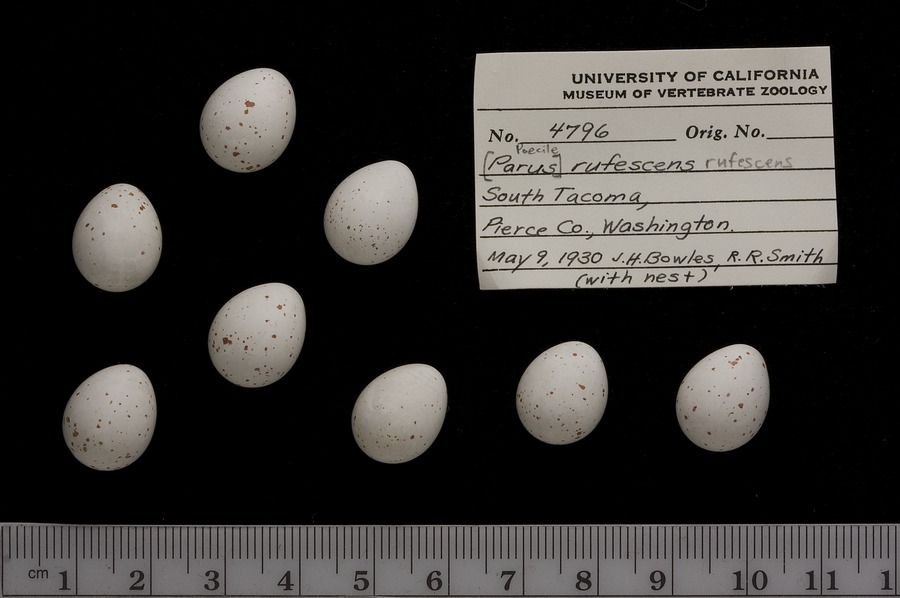 UNIVERSITY OF CALIFORNIA
MUSEUM OF VERTEBRATE ZOOLOGY
No. 4796 Orig. No.
Poecile
[Parus] rufescens rufescens
South Tacoma,
Pierce Co., Washington.
May 9, 1930 J.H.Bowles, R.R.Smith
(with nest)
cm 1 2 3 4 5 6 7 8 9 10 11 1